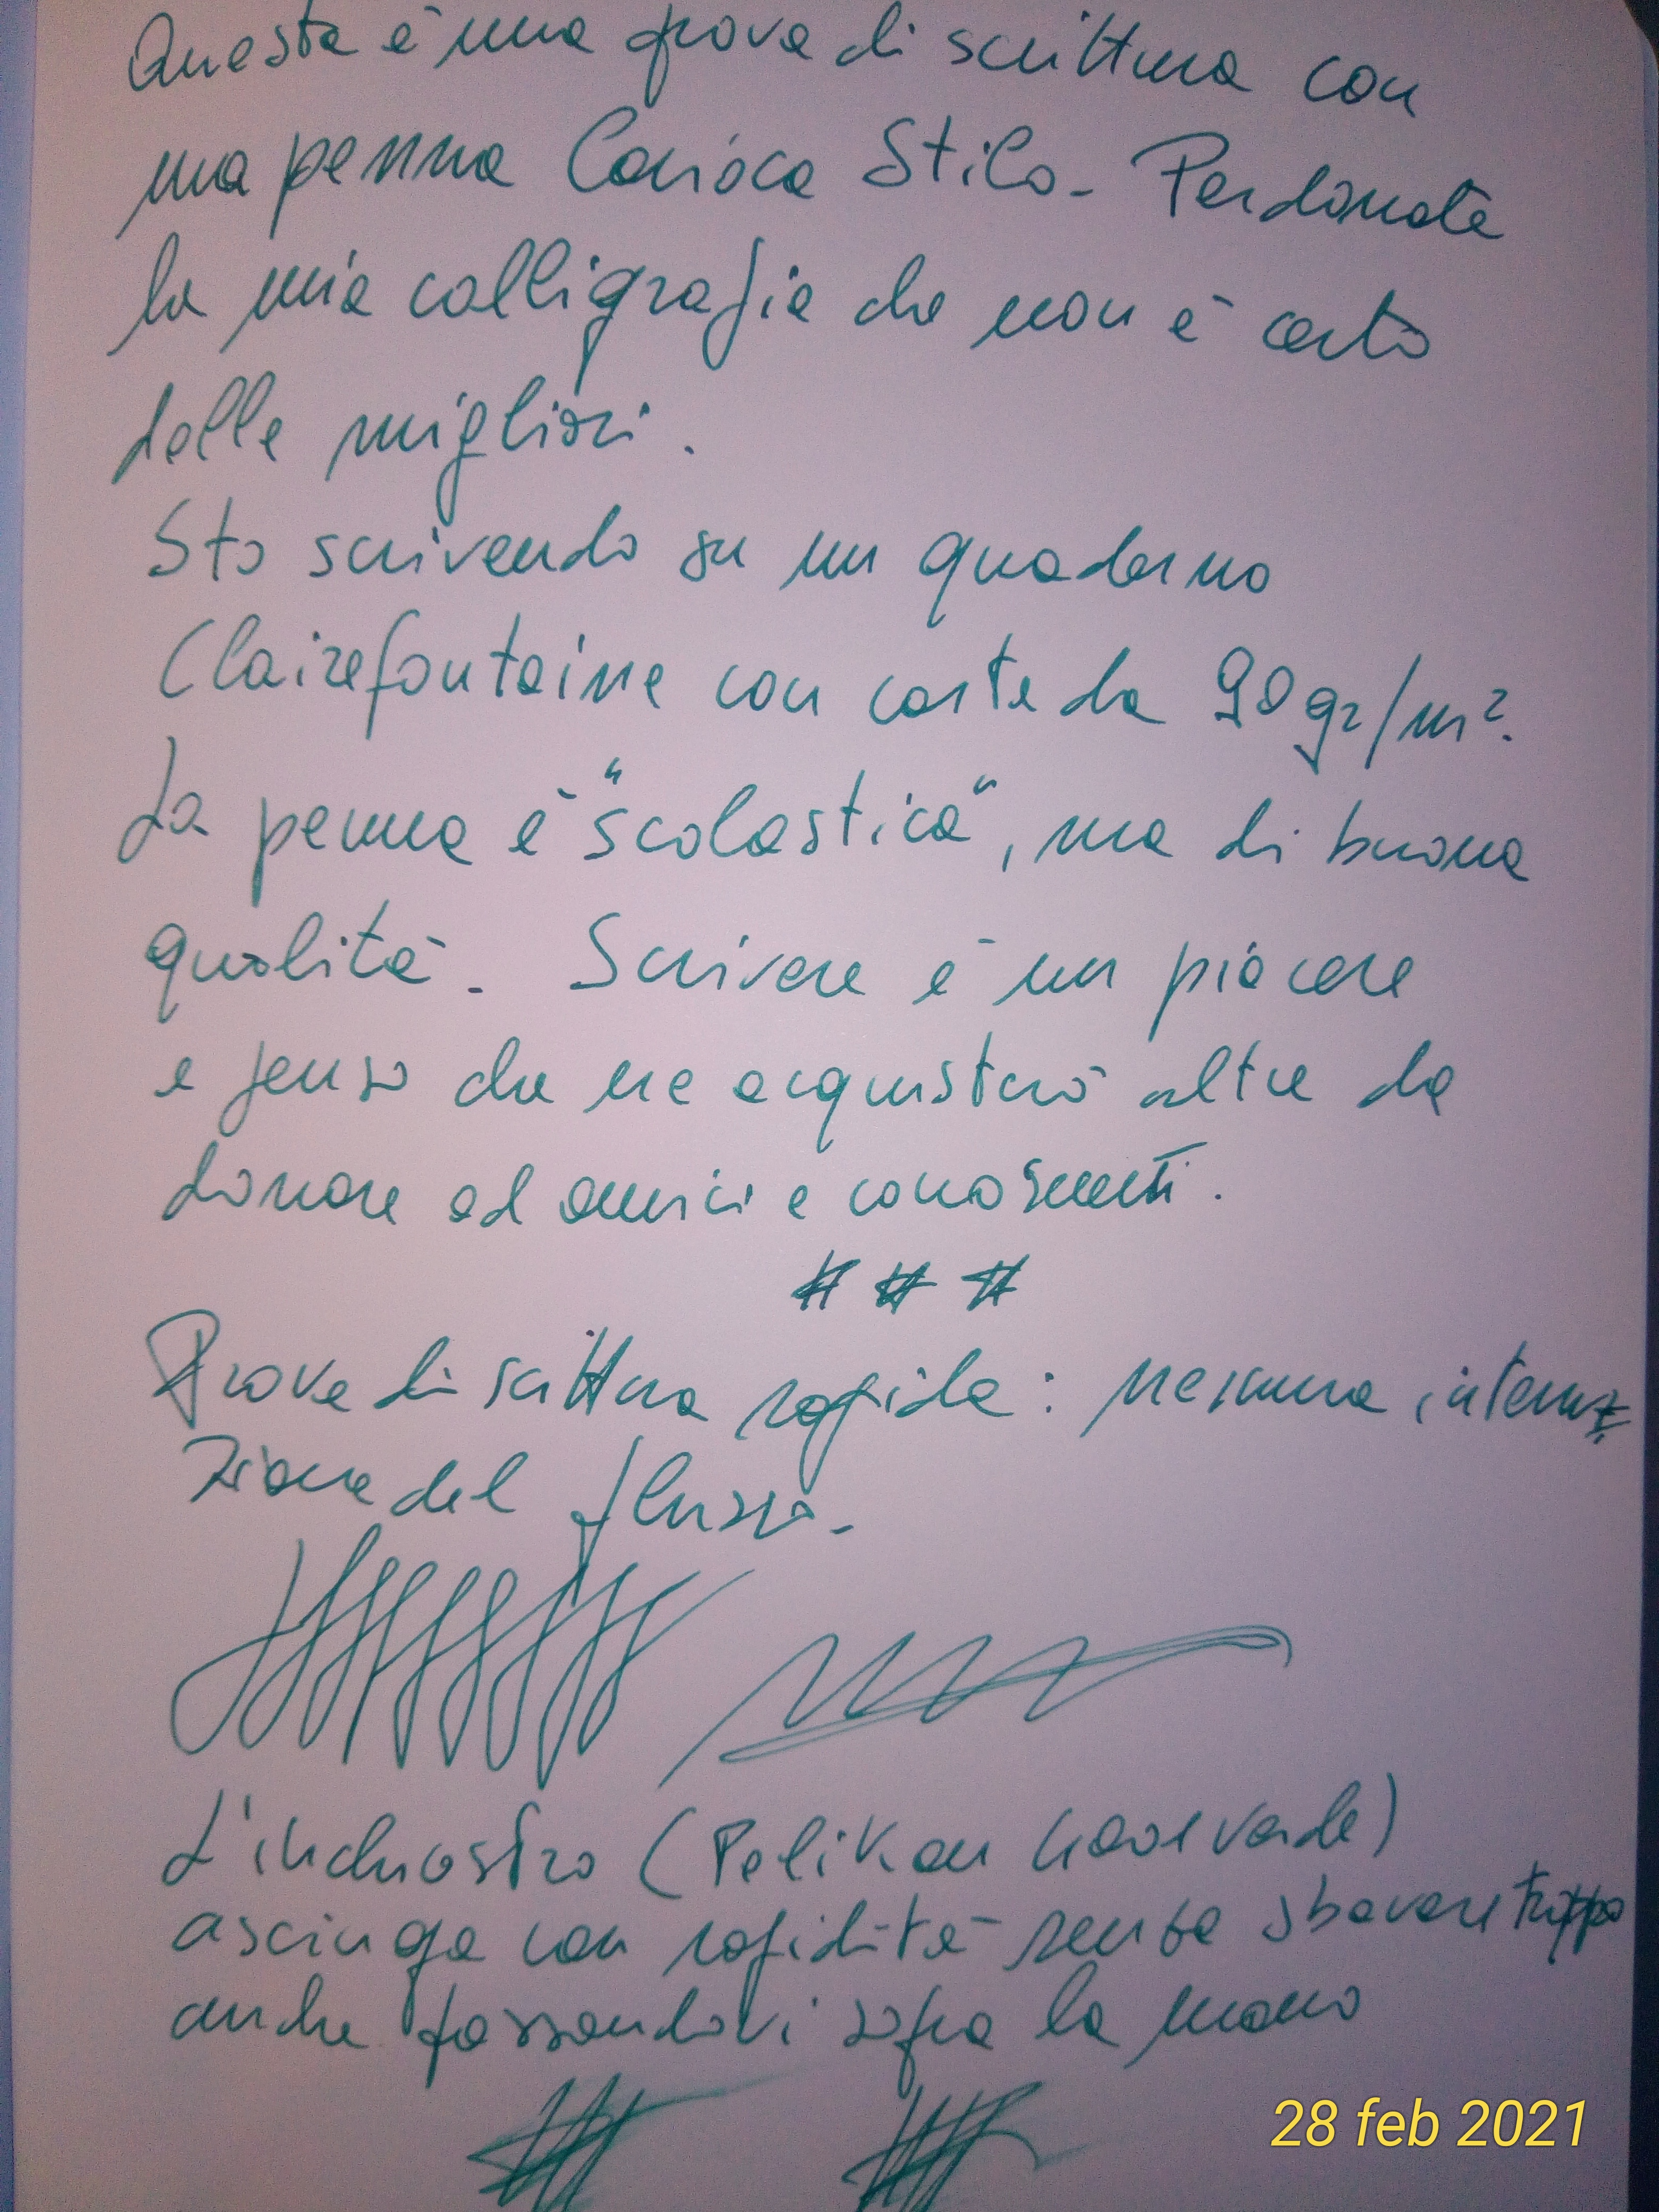 Questa è una prova di scrittura con
una penna Carioca Stilo. Perdonate
la mia calligrafia che non è certo
delle migliori.
Sto scrivendo su un quaderno
Clairefontaine con carta da 90 gr/m².
La penna è "scolastica", ma di buona
qualità. Scrivere è un piacere
e penso che ne acquisterò altre da
donare ad amici e conoscenti.
# # #
Prova di scrittura rapida: nessuna interru
zione del flusso.
L'inchiostro (Pelikan verde)
asciuga con rapidità senza sbavare troppo
anche passandovi sopra la mano
28 feb 2021